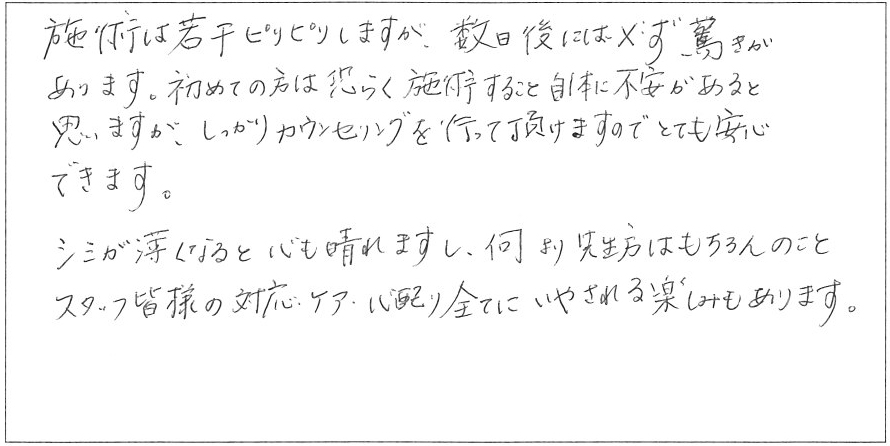 施術は若干ピリピリしますが、数日後には必ず驚きが
あります。初めての方は恐らく施術すること自体に不安があると
思いますが、しっかりカウンセリングを行って頂けますのでとても安心
できます。
シミが薄くなると心も晴れますし、何より先生方はもちろんのこと
スタッフ皆様の対応・ケア・心配り全てにいやされる楽しみもあります。